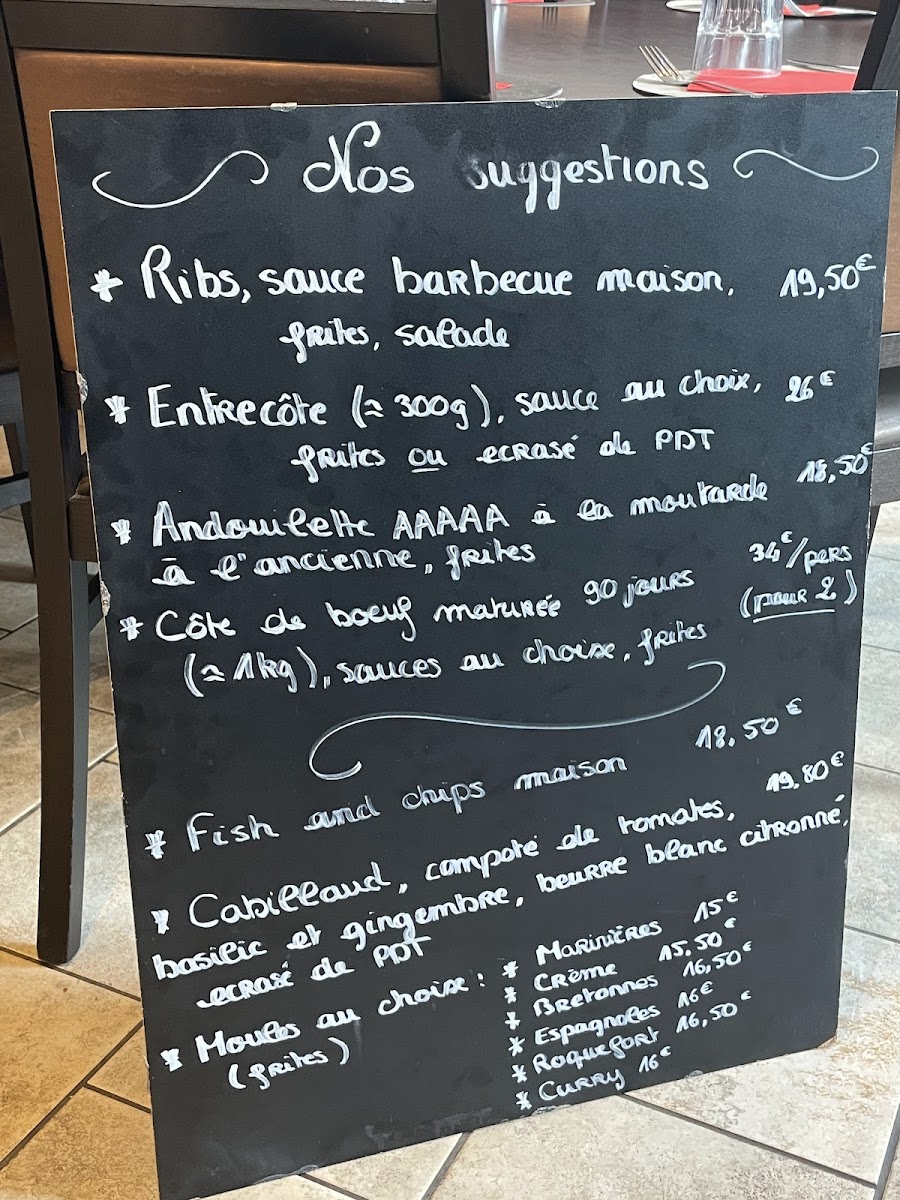 Nos suggestions
* Ribs, sauce barbecue maison, 19,50€
frites, salade
* Entrecôte (≈ 300g), sauce au choix, 26€
frites ou ecrasé de PDT
* Andouillette AAAAA à la moutarde 18,50€
à l'ancienne, frites
* Côte de boeuf maturée 90 jours 34€/pers
(≈ 1kg), sauces au choix, frites (pour 2)
* Fish and chips maison 18.50€
* Cabillaud, compoté de tomates, 19,80€
basilic et gingembre, beurre blanc citronné,
ecrasé de PDT
* Moules au choix :
(frites)
* Marinières 15€
* Crème 15,50€
* Bretonnes 16,50€
* Espagnoles 16€
* Roquefort 16,50€
* Curry 16€